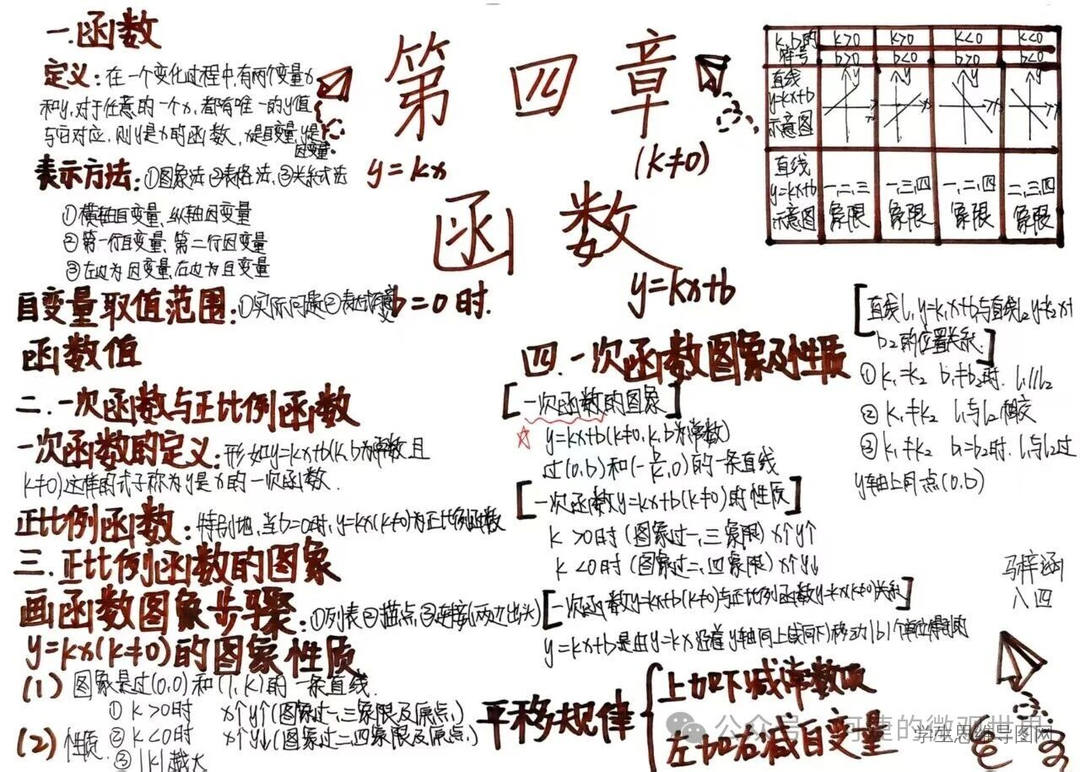 第四章
函数
y=kx
(k≠0)
y=kx+b
b=0时.
一.函数
定义:在一个变化过程中,有两个变量x
和y,对于任意的一个x,都有唯一的y值
与它对应,则y是x的函数,x是自变量,y是
因变量.
表示方法:①图象法,②表格法,③关系式法
①横轴自变量,纵轴因变量
②第一行自变量,第二行因变量
③左边为因变量,右边为自变量
自变量取值范围:①实际问题②表达式
函数值
二.一次函数与正比例函数
一次函数的定义:形如y=kx+b(k,b为常数且
k≠0)这样的式子称为y是x的一次函数.
正比例函数:特别地,当b=0时,y=kx(k≠0)为正比例函数
三.正比例函数的图象
画函数图象步骤:①列表②描点,③连接(两边出头)
y=kx(k≠0)的图象性质
(1) 图象是过(0,0)和(1,k)的一条直线.
(2) 性质.
①k>0时 x个y个(图象过一,三象限及原点,)
②k<0时 x个y↓(图象过二四象限及原点,)
③|k|越大
k,b的符号 k>0 b>0 k>0 b<0 k<0 b>0 k<0 b<0
直线
y=kx+b
示意图
直线
y=kx+b
示意图
一,二,三象限
一,三,四象限
一,二,四象限
二,三,四象限
四.一次函数图象及性质
[一次函数的图象]
y=kx+b(k≠0,k,b为常数)
过(0,b)和(-b/k,0)的一条直线
[一次函数y=kx+b(k≠0)的性质]
k>0时(图象过一,三象限)x个y个
k<0时(图象过二,四象限)x个y↓
[一次函数y=kx+b(k≠0)与正比例函数y=kx(k≠0)关系]
y=kx+b是由y=kx沿着y轴向上(或向下)移动|b|个单位得到的
平移规律
上加下减常数项
左加右减自变量
[直线l₁y=k₁x+b₁与直线l₂y=k₂x+
b₂的位置关系.]
①k₁=k₂ b₁≠b₂时.l₁∥l₂
②k₁≠k₂ l₁与l₂相交
③k₁≠k₂ b₁=b₂时.l₁与l₂过
y轴上同点(0,b)
马梓涵
八四
学生思维导图网